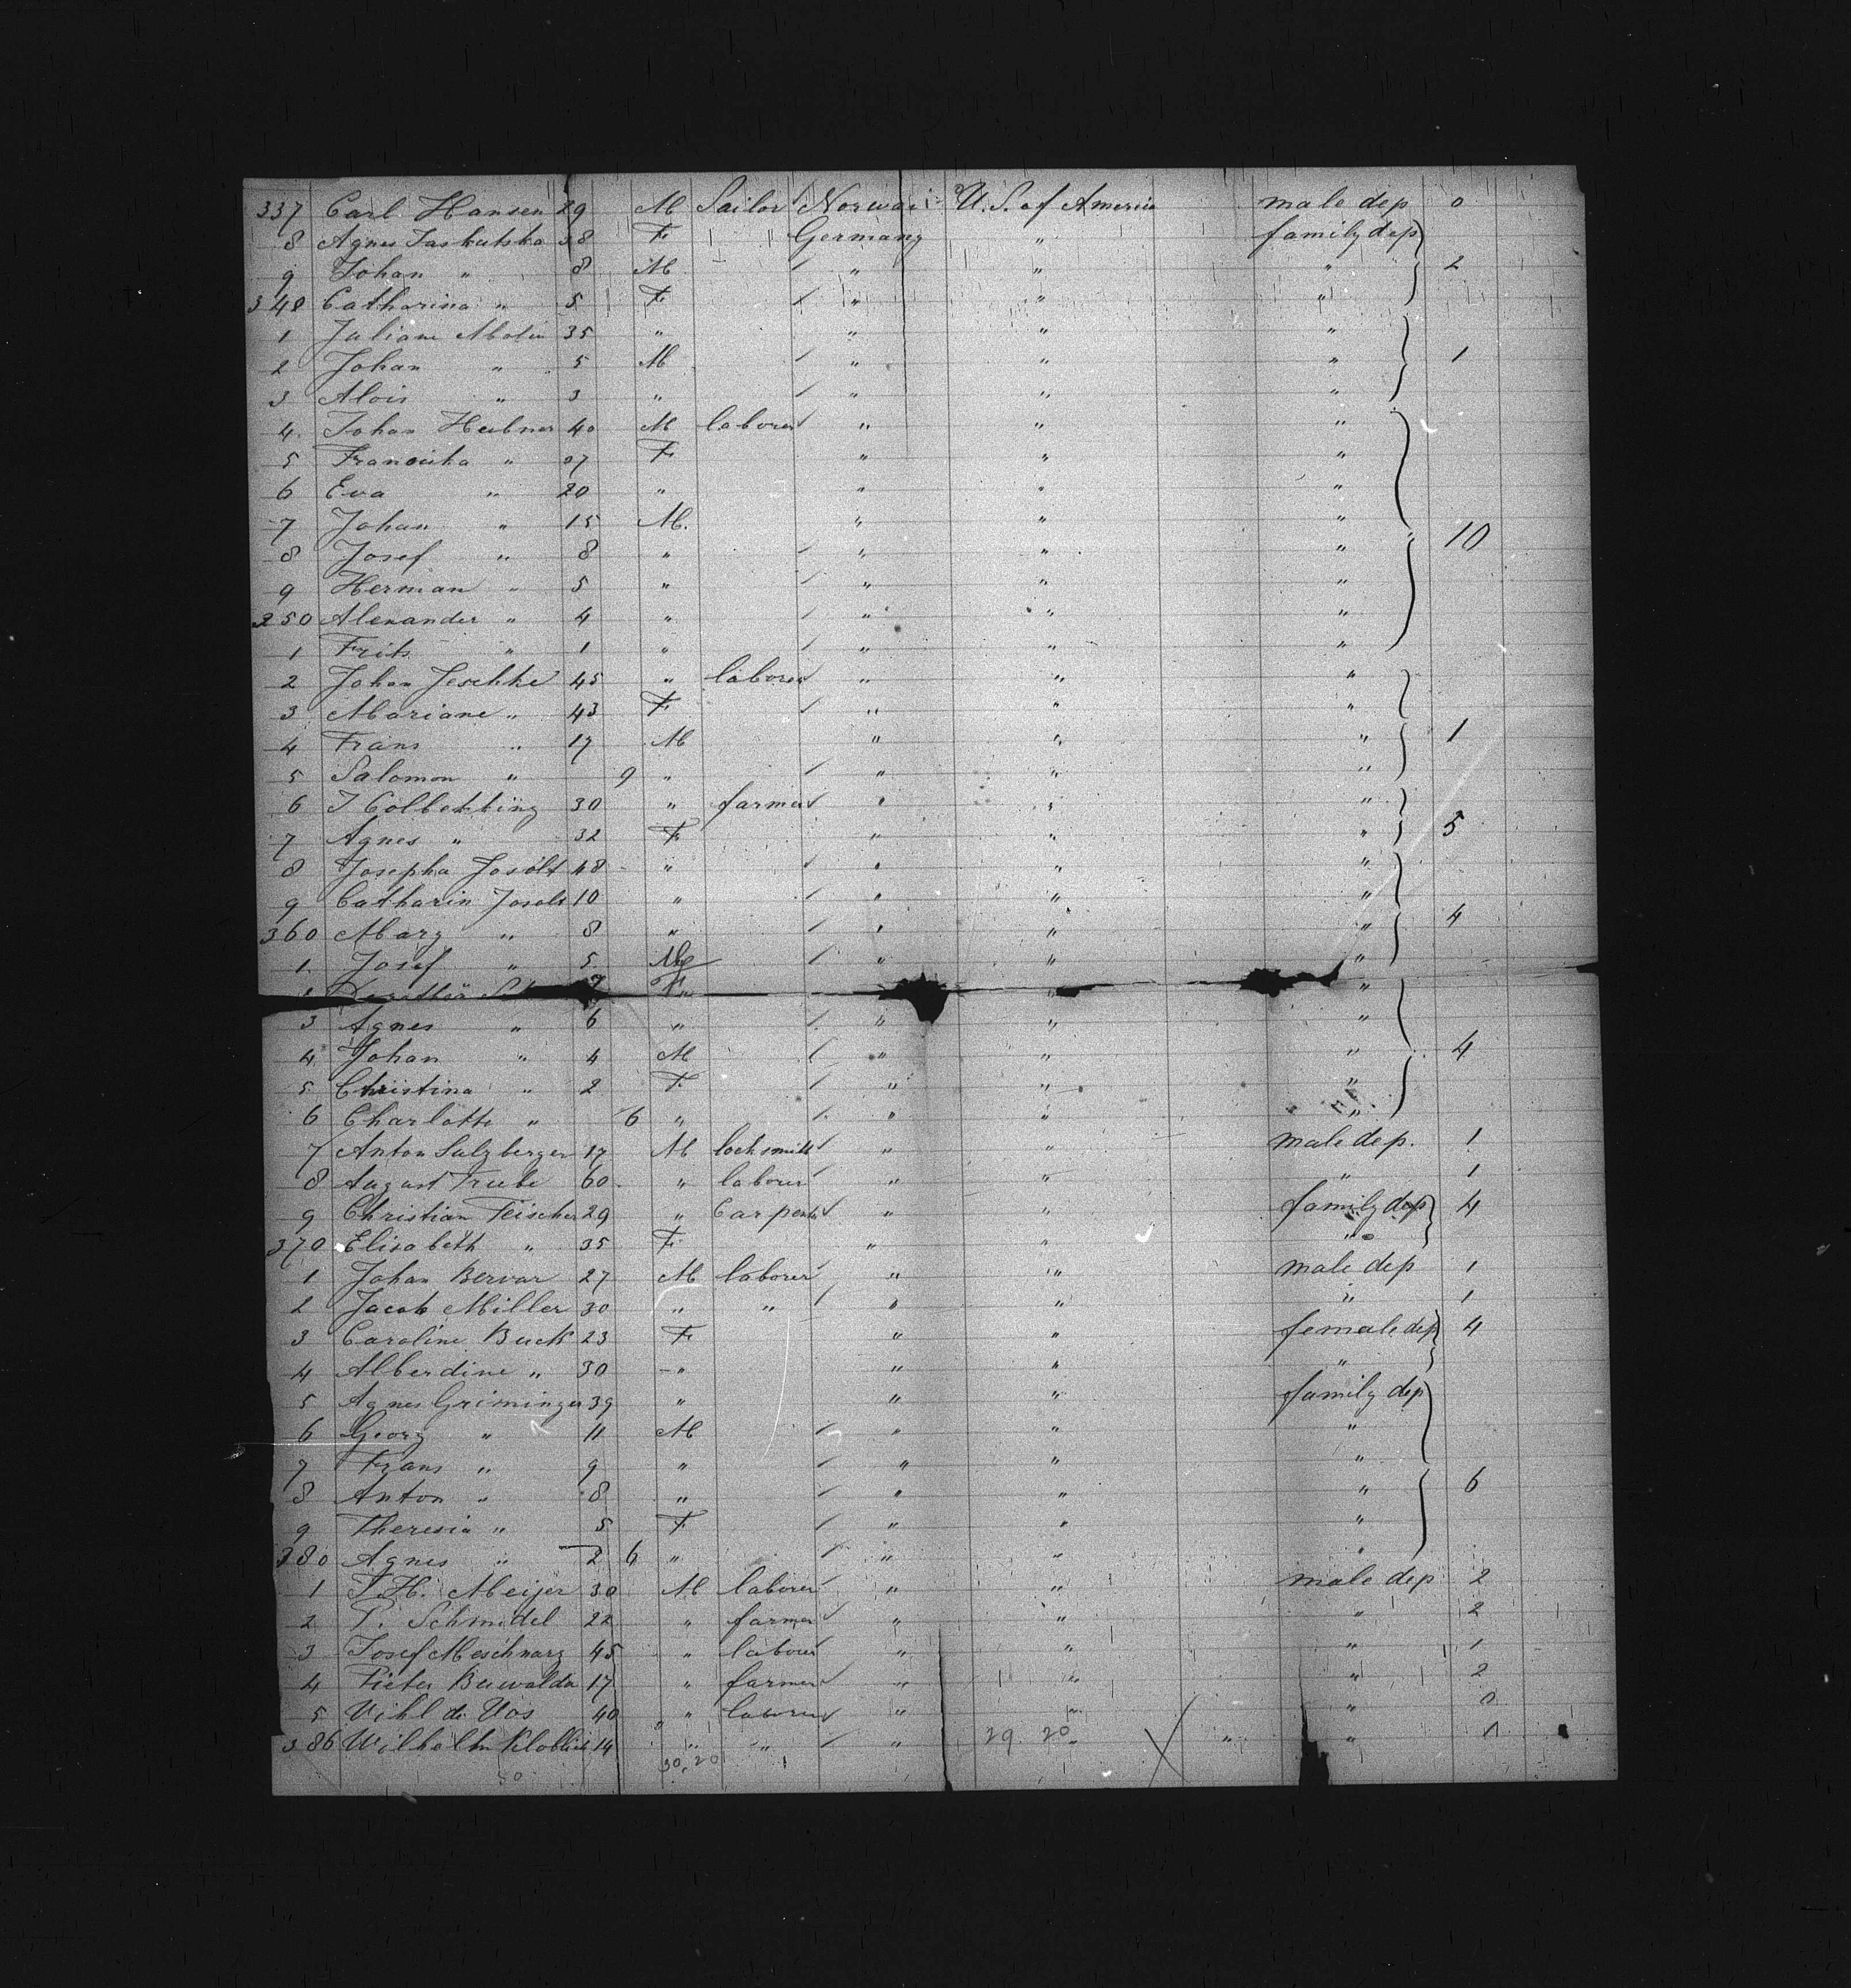 337 Carl Hansen 29 M Sailor Norwai U.S. of America male dep 0
8 Agnes 38 F Germany " family dep
9 Johan " 8 M " " " 2
340 Catharina " 5 F " " "
1 Juliane 35 " " " "
2 Johan " 5 M " " " 1
3 Alois " 3 " " " "
4 Johan Hubner 40 M laborer " " "
5 " F " " "
6 Eva " 20 " " " "
7 Johan " 15 M. " " "
8 Josef " 8 " " " " 10
9 Herman " 5 " " " "
350 Alexander " 4 " " " "
1 Frits " 1 " " " "
2 Johan Jeschke 45 " laborer " " "
3 Mariane " 43 F " " "
4 Frans " 17 M " " " 1
5 Salomon " 9 " " " "
6 30 " farmer " " "
7 Agnes " 32 F " " " 5
8 Josepha 48 " " " "
9 Catharin 10 " " " "
360 Mary " 8 " " " " 4
1 Josef " 5 M " " "
F " "
3 Agnes " 6 " " " "
4 Johan " 4 M " " " 4
5 Christina " 2 F " " "
6 Charlotte " 6 " " " "
7 Anton Salzberger 17 M locksmith " " male dep. 1
8 August 60 " laborer " " " 1
9 Christian Teischer 29 " Carpenter " " family dep 4
370 Elisabeth " 35 F " " "
1 Johan Bervar 27 M laborer " " male dep 1
2 Jacob Miller 30 " " " " " 1
3 Caroline Buck 23 F " " female dep 4
4 Alberdine " 30 " " " "
5 Agnes Griminger 39 " " " family dep
6 Georg " 11 M " " "
7 Frans " 9 " " " "
8 Anton " 8 " " " " 6
9 Theresia " 5 F " " "
380 Agnes " 2 6 " " " "
1 Meijer 30 M laborer " " male dep 2
2 P. Schmidel 22 " farmer " " " 2
3 Josef 45 " laborer " " " 1
4 Pieter Buwalda 17 " farmer " " " 2
5 de Vos 40 " laborer " " " 0
386 Wilhelm 14 " " " 29 20 " "
50 30,20